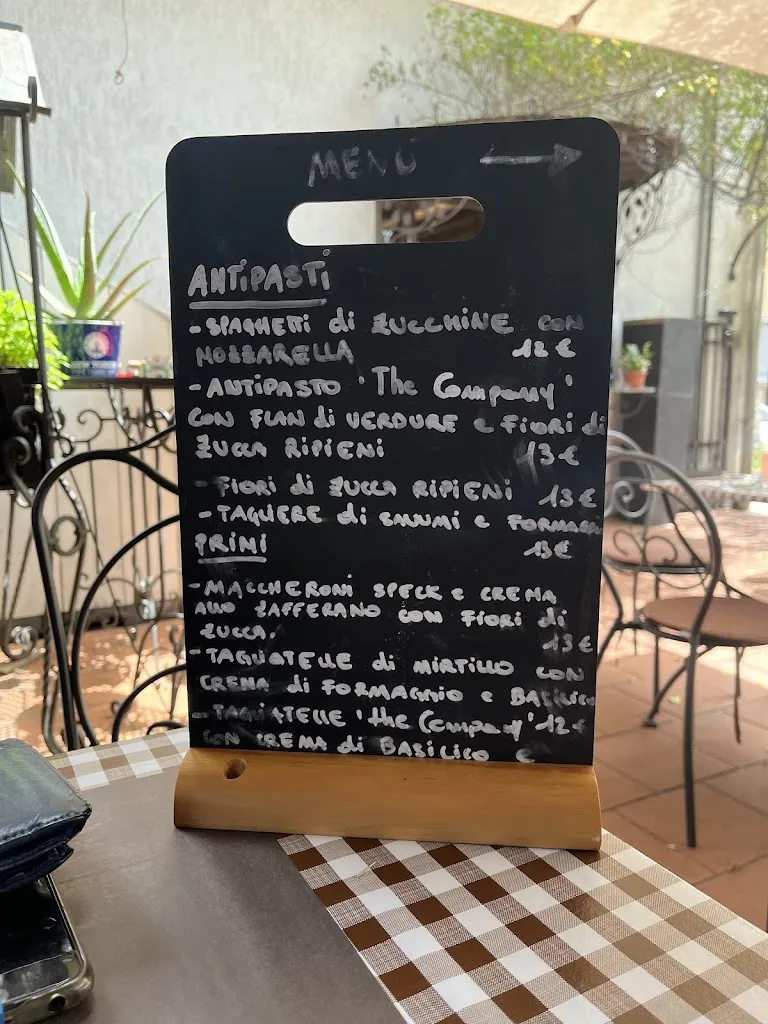 MENÙ →
ANTIPASTI
- SPAGHETTI di ZUCCHINE CON
MOZZARELLA 12 €
- ANTIPASTO 'The Company'
CON FLAN di VERDURE e FIORI di
ZUCCA RIPIENI 13 €
- FIORI di ZUCCA RIPIENI 13 €
- TAGLIERE di SALUMI e FORMAGGI
13 €
PRIMI
- MACCHERONI SPECK e CREMA
ALLO ZAFFERANO CON FIORI di
ZUCCA. 13 €
- TAGLIATELLE di MIRTILLO CON
CREMA di FORMAGGIO e BASILICO
- TAGLIATELLE 'the Company' 12 €
CON CREMA di BASILICO e